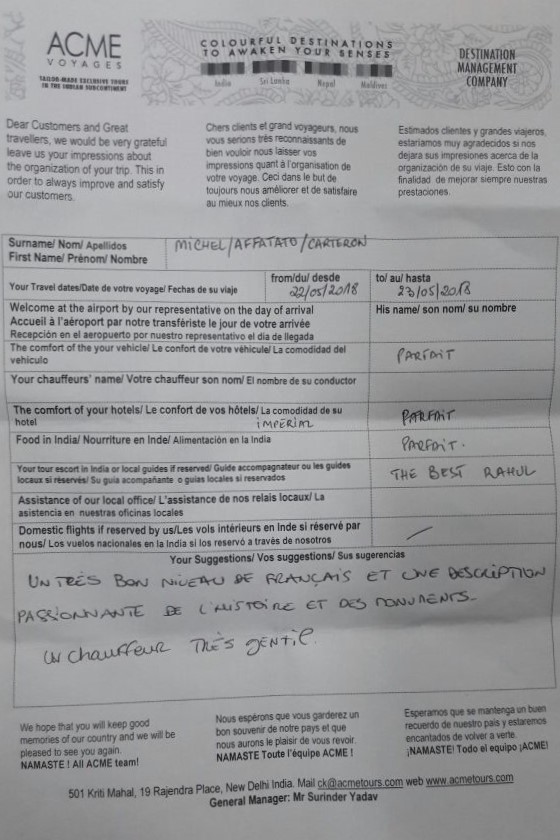 ACME
VOYAGES
TAILOR-MADE EXCLUSIVE TOURS
IN THE INDIAN SUBCONTINENT
COLOURFUL DESTINATIONS
TO AWAKEN YOUR SENSES
India Sri Lanka Nepal Maldives
DESTINATION
MANAGEMENT
COMPANY
Dear Customers and Great
travellers, we would be very grateful
leave us your impressions about
the organization of your trip. This in
order to always improve and satisfy
our customers.
Chers clients et grand voyageurs, nous
vous serions très reconnaissants de
bien vouloir nous laisser vos
impressions quant à l'organisation de
votre voyage. Ceci dans le but de
toujours nous améliorer et de satisfaire
au mieux nos clients.
Estimados clientes y grandes viajeros,
estaríamos muy agradecidos si nos
dejara sus impresiones acerca de la
organización de su viaje. Esto con la
finalidad de mejorar siempre nuestras
prestaciones.
Surname/ Nom/ Apellidos
First Name/ Prénom/ Nombre
MICHEL/AFFATATO/CARTERON
Your Travel dates/Date de votre voyage/ Fechas de su viaje
from/du/ desde
22/05/2018
to/ au/ hasta
23/05/2018
Welcome at the airport by our representative on the day of arrival
Accueil à l'aéroport par notre transfériste le jour de votre arrivée
Recepción en el aeropuerto por nuestro representativo el dia de llegada
His name/ son nom/ su nombre
The comfort of the your vehicle/ Le confort de votre véhicule/ La comodidad del
vehículo
PARFAIT
Your chauffeurs' name/ Votre chauffeur son nom/ El nombre de su conductor
The comfort of your hotels/ Le confort de vos hôtels/ La comodidad de su
hotel
IMPERIAL
PARFAIT
Food in India/ Nourriture en Inde/ Alimentación en la India
PARFAIT.
Your tour escort in India or local guides if reserved/ Guide accompagnateur ou les guides
locaux si réservés/ Su guia acompañante o guías locales si reservados
THE BEST RAHUL
Assistance of our local office/ L'assistance de nos relais locaux/ La
asistencia en nuestras oficinas locales
Domestic flights if reserved by us/Les vols intérieurs en Inde si réservé par
nous/ Los vuelos nacionales en la India si los reservó a través de nosotros
Your Suggestions/ Vos suggestions/ Sus sugerencias
UN TRÈS BON NIVEAU DE FRANÇAIS ET UNE DESCRIPTION
PASSIONNANTE DE L'HISTOIRE ET DES MONUMENTS.
UN chauffeur TRÈS GENTIL.
We hope that you will keep good
memories of our country and we will be
pleased to see you again.
NAMASTE ! All ACME team!
Nous espérons que vous garderez un
bon souvenir de notre pays et que
nous aurons le plaisir de vous revoir.
NAMASTE Toute l'équipe ACME !
Esperamos que se mantenga un buen
recuerdo de nuestro país y estaremos
encantados de volver a verte.
¡NAMASTE! Todo el equipo ¡ACME!
501 Kriti Mahal, 19 Rajendra Place, New Delhi India. Mail ck@acmetours.com web www.acmetours.com
General Manager: Mr Surinder Yadav